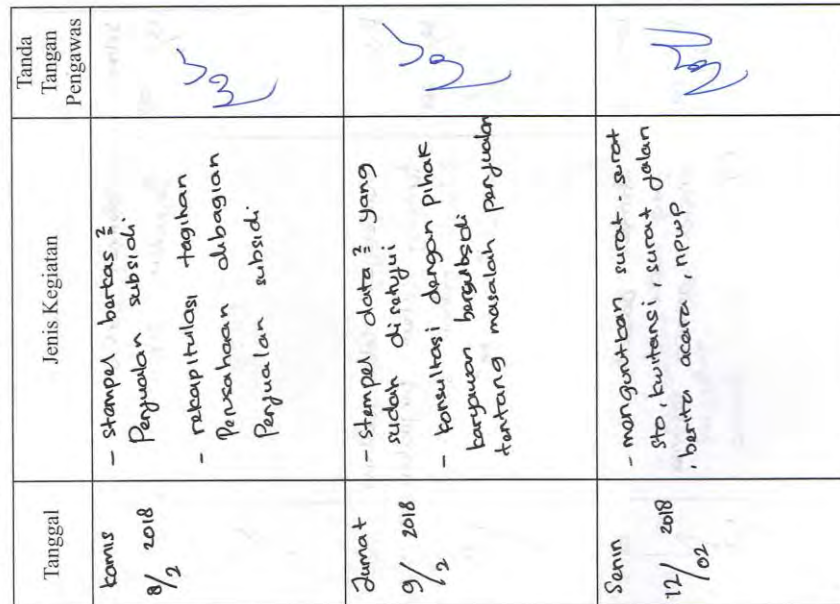 Tanggal
Jenis Kegiatan
Tanda
Tangan
Pengawas
Kamis
8/2 2018
- stampel berkas²
Penjualan subsidi
- rekapitulasi tagihan
Perusahaan dibagian
Penjualan subsidi
Jumat
9/2 2018
- stempel data² yang
sudah disetujui
- konsultasi dengan pihak
karyawan bersubsidi
tentang masalah penjualan
Senin
12/02 2018
- mengurutkan surat-surat
sto, kwitansi, surat jalan
, berita acara, npwp